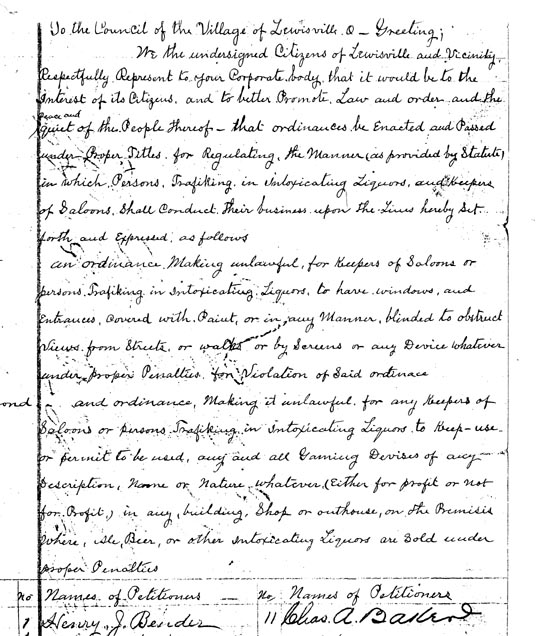 To the Council of the Village of Lewisville. O - Greeting;
We the undersigned Citizens of Lewisville and Vicinity
Respectfully Represent to your Corporate body, that it would be to the
Interest of its Citizens, and to better Promote, Law and order and the
peace and
quiet of the People Thereof - that ordinances be Enacted and Passed
under Proper Titles. for Regulating, the Manner (as provided by Statute)
in which Persons, Trafiking in Intoxicating Liquors, and Keepers
of Saloons, Shall Conduct their business upon the Lines hereby Set
forth and Expressed, as follows
an ordinance, Making unlawful, for Keepers of Saloons or
persons Trafiking in Intoxicating Liquors, to have windows, and
Entrances, covered with Paint, or in any Manner, blinded to obstruct
Views from Streets, or walks or by Screens or any Device whatever
under proper Penalties for Violation of Said ordinace
ond and ordinance, Making it unlawful for any Keepers of
Saloons or persons Trafiking in Intoxicating Liquors to Keep-use
or permit to be used, any and all Gaming Devises of any
Description, Name or Nature whatever, (Either for profit or not
for Profit,) in any, building, Shop or outhouse, on the Premisis
Where, Beer, or other Intoxicating Liquors are Sold under
proper Penalties
no Names of Petitioners - No Names of Petitioners
1 Henry J. Bender 11 Chas. A.